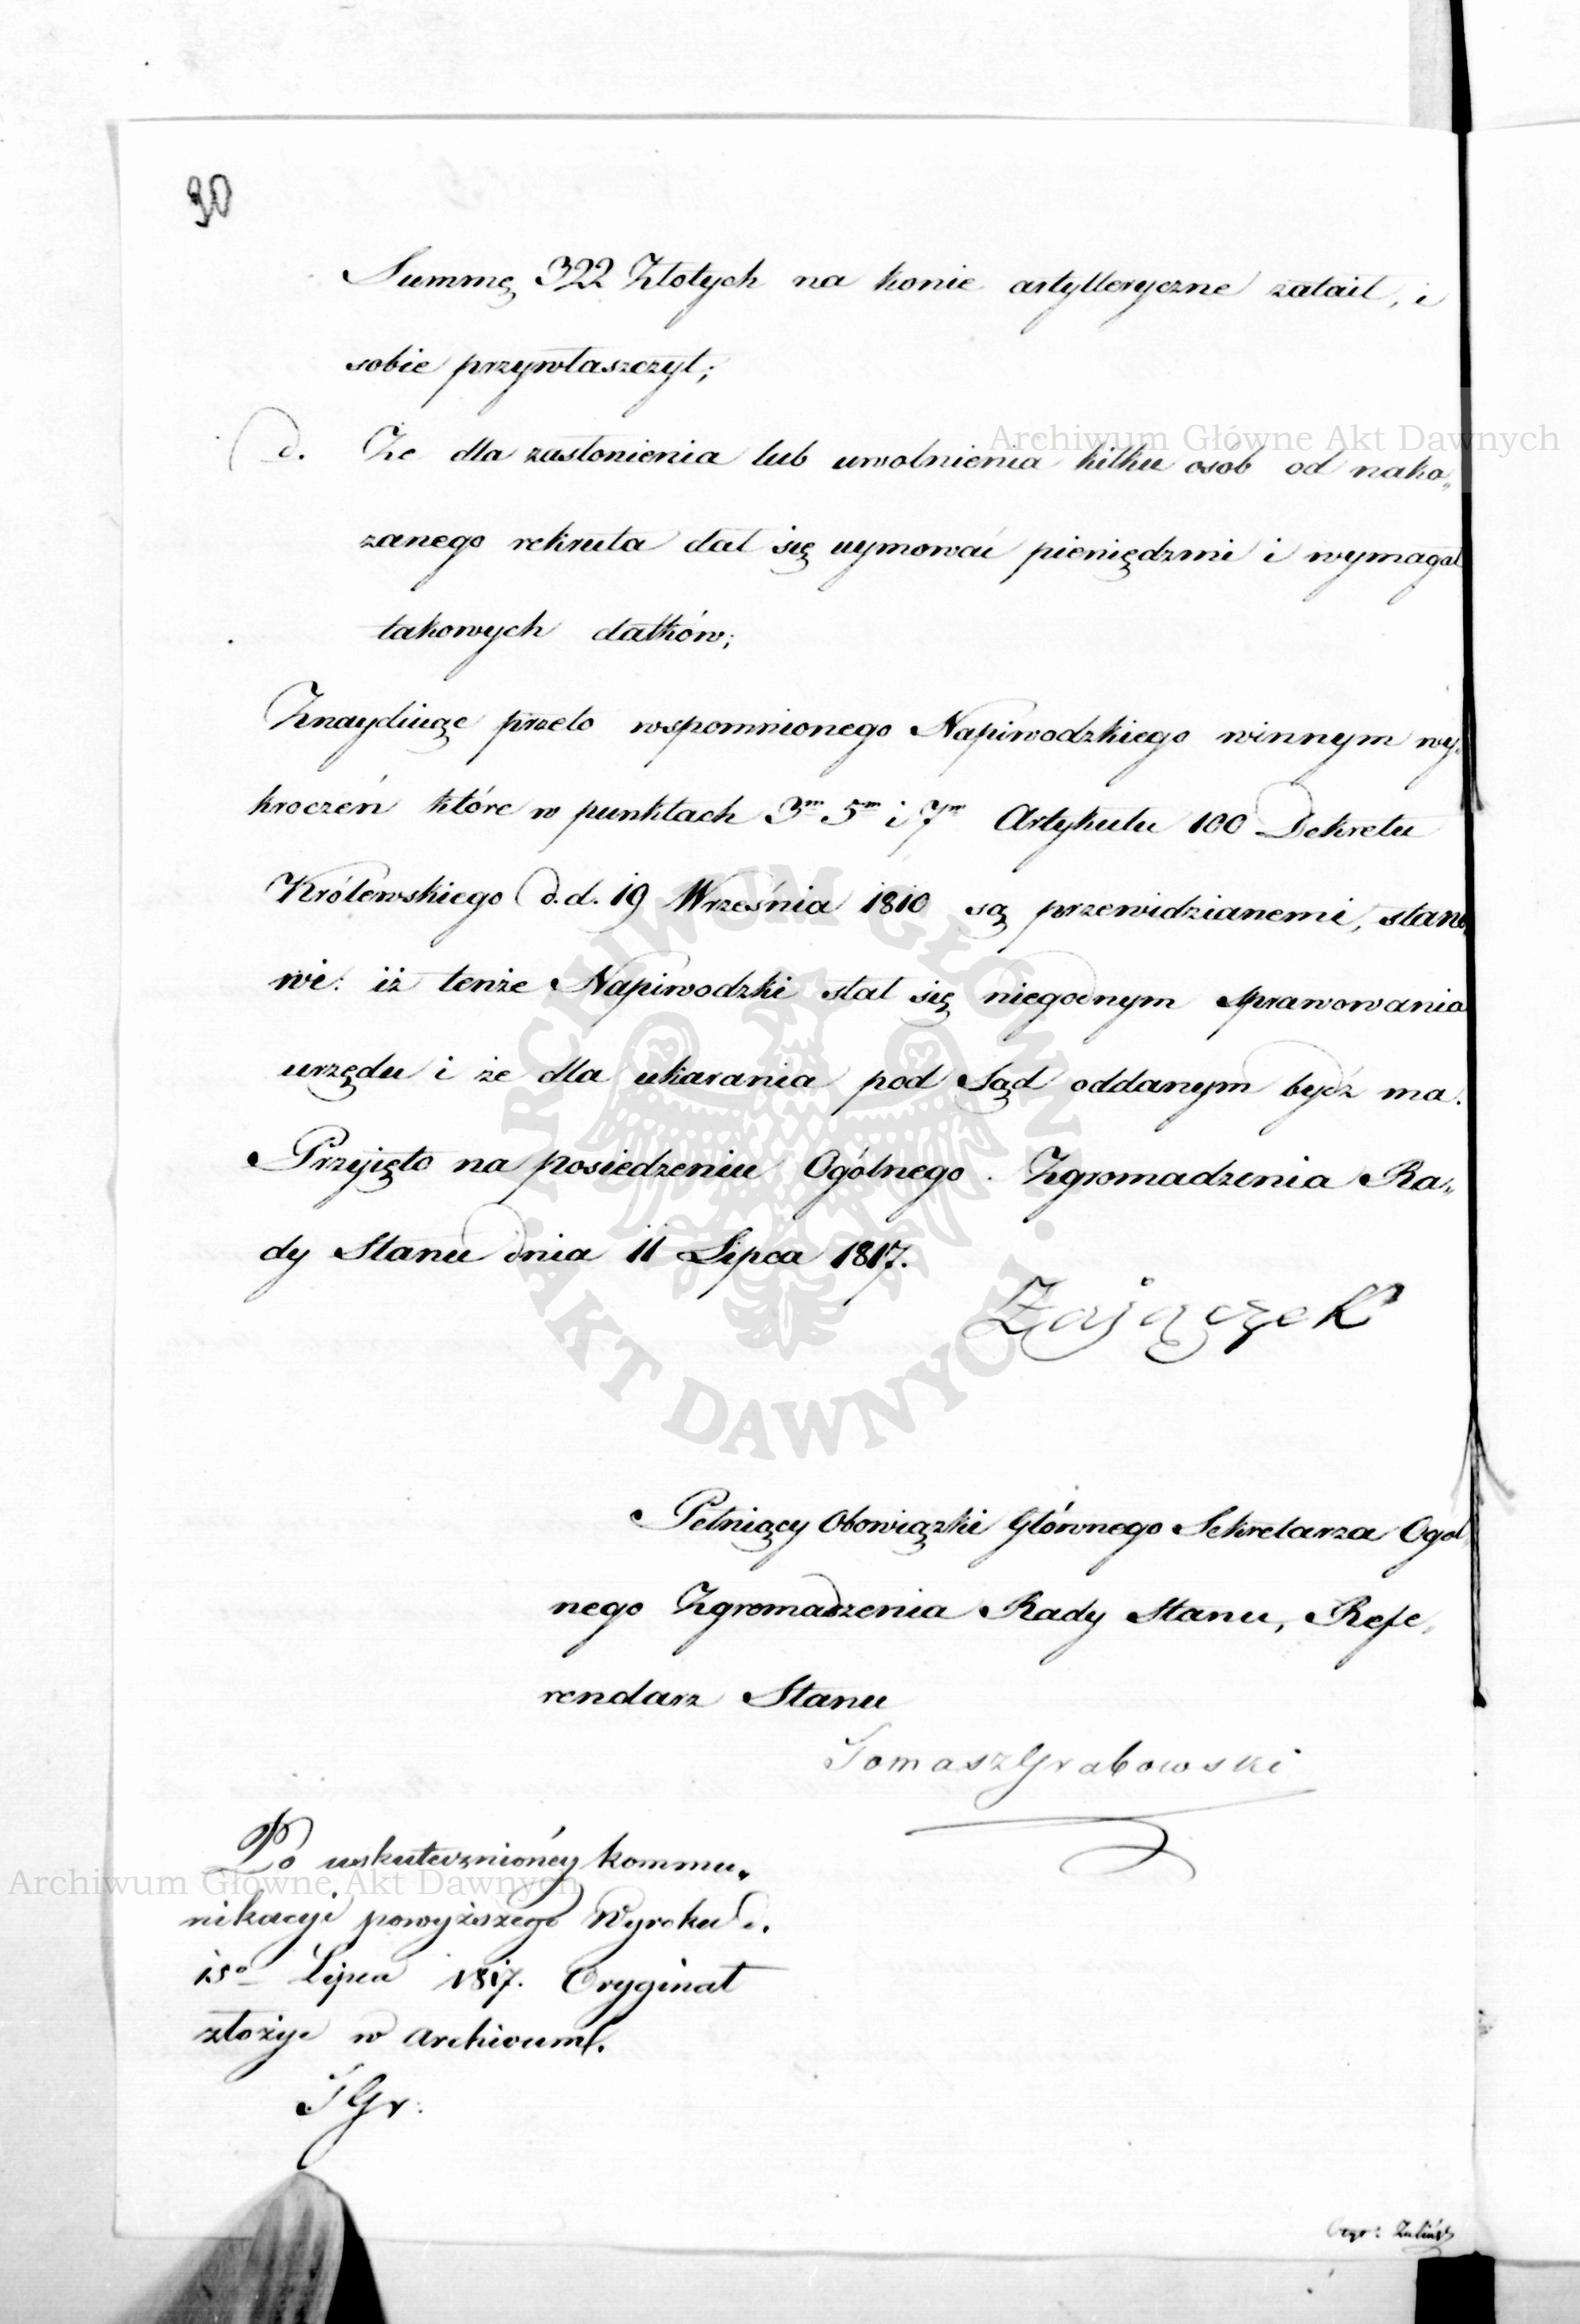 90
Summę 322 Złotych na konie artylleryczne zataił, i
sobie przywłaszczył;
d. Że dla zasłonienia lub uwolnienia kilku osob od naka„
zanego rekruta dał się uymować pieniędzmi i wymagał
takowych datków;
Znayduiąc przeto wspomnionego Napiwodzkiego winnym wy„
kroczeń które w punktach 3m 5m i 7m Artykułu 100 Dekretu
Królewskiego d.d. 19 Września 1810 są przewidzianemi, stano„
wi: iż tenże Napiwodzki stał się niegodnym sprawowania
urzędu i że dla ukarania pod Sąd oddanym bydź ma.
Przyięto na posiedzeniu Ogólnego Zgromadzenia Ra„
dy Stanu dnia 11 Lipca 1817.
Zajączek
Pełniący Obowiązki Głównego Sekretarza Ogol„
nego Zgromadzenia Rady Stanu, Refe„
rendarz Stanu
Tomasz Grabowski
Po uskutecznioney kommu„
nikacyi powyższego Wyroku d.
15o Lipca 1817. Oryginał
złożyć w Archivum.
TGr:
Archiwum Główne Akt Dawnych
Archiwum Główne Akt Dawnych
ARCHIWUM GŁÓWNE
AKT DAWNYCH